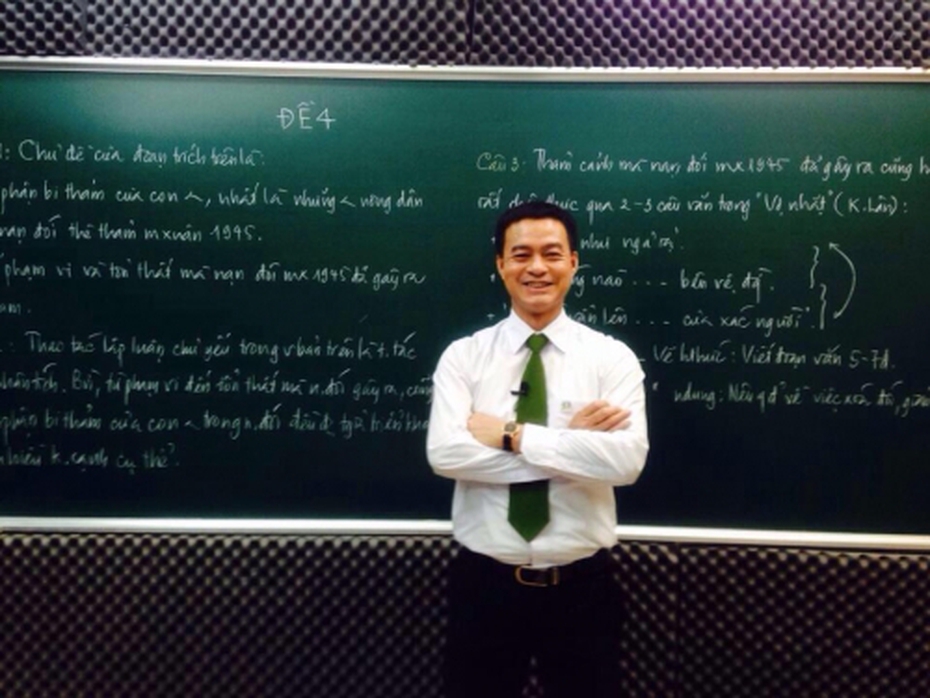 ĐỀ 4
: Chủ đề của đoạn trích trên là:
phận bi thảm của con <, nhất là những < nông dân
nạn đói thê thảm mxuân 1945.
phạm vi và tổn thất mà nạn đói mx 1945 đã gây ra
: Thao tác lập luận chủ yếu trong vbản trên là t. tác
phân tích. Bởi, từ phạm vi đến tổn thất mà n.đói gây ra,
phận bi thảm của con < trong n.đói đều đc
nhiều k.cạnh cụ thể.
Câu 3: Thảm cảnh mà nạn đói mx 1945 đã gây ra cũng
rất qua 2-3 câu văn trong "Vợ nhặt" (K.Lân):
như ngả rạ".
nào ... bên vệ đg".
lên ... của xác người".
Về hthức: Viết đoạn văn 5-7d.
ndung: Nêu qđ về việc xoá đói,